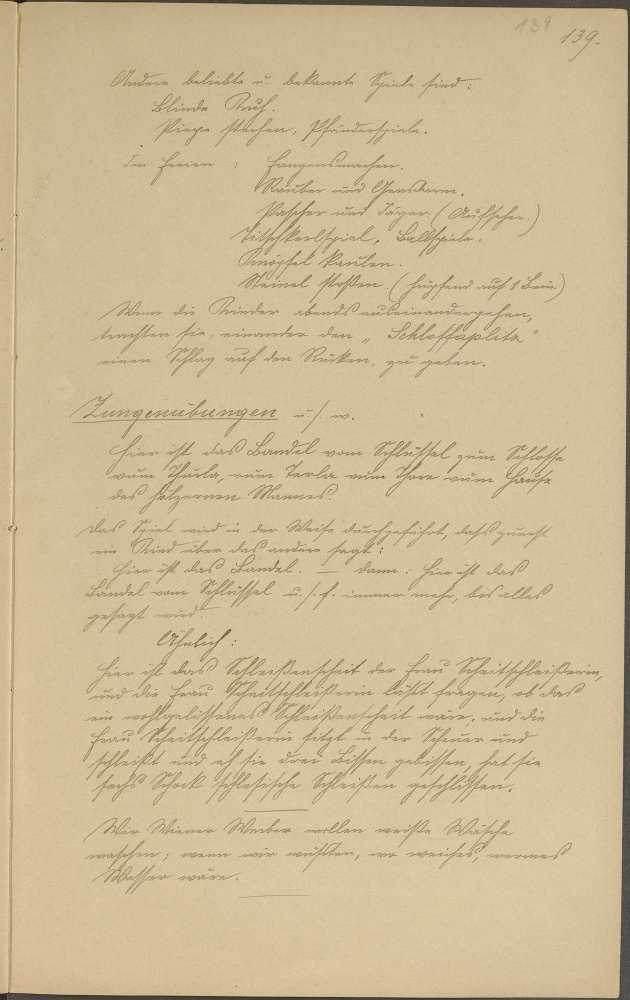 139
139.
Andere beliebte u. bekannte Spiele sind:
Blinde Kuh.
stechen, Pfänderspiele.
Im Freien : Fangenmachen.
Räuber und Gensdarm.
Pascher und Jäger (Aufseher.)
Titschkerlspiel, Ballspiele.
Knöpfel kaulen.
Steinel stoßen. (hupfend auf 1 Bein)
Wenn die Kinder abends auseinandergehen,
trachten sie, einander den „
einen Schlag auf den Rücken, zu geben.
Zungenübungen u. s. w.
Hier ist das Bandel vom Schlüssel zum Schlosse
vum Thürla, vum Thore vum Hause
des hölzernen Mannes.
Das Spiel wird in der Weise durchgeführt, daß zuerst
ein Kind über das andere sagt:
Hier ist das Bandel. — dann: Hier ist das
Bandel vom Schlüssel u. s. f. immer mehr, bis alles
gesagt wird.
Ähnlich:
Hier ist das Schleißenscheit der Frau Scheitschleißerin,
und die Frau Scheitschleißerin läßt fragen, ob das
ein wohlgelissenes Schleißenscheit wäre; und die
Frau Scheitschleißerin sitzt in der Scheuer und
schleißt und eh sie drei Bissen gebissen, hat sie
sechs Schock schlesische Schleißen geschlissen.
Wir Wiener Weiber wollen weiße Wäsche
waschen; wenn wir wüßten, wo weiches, warmes
Wasser wäre.